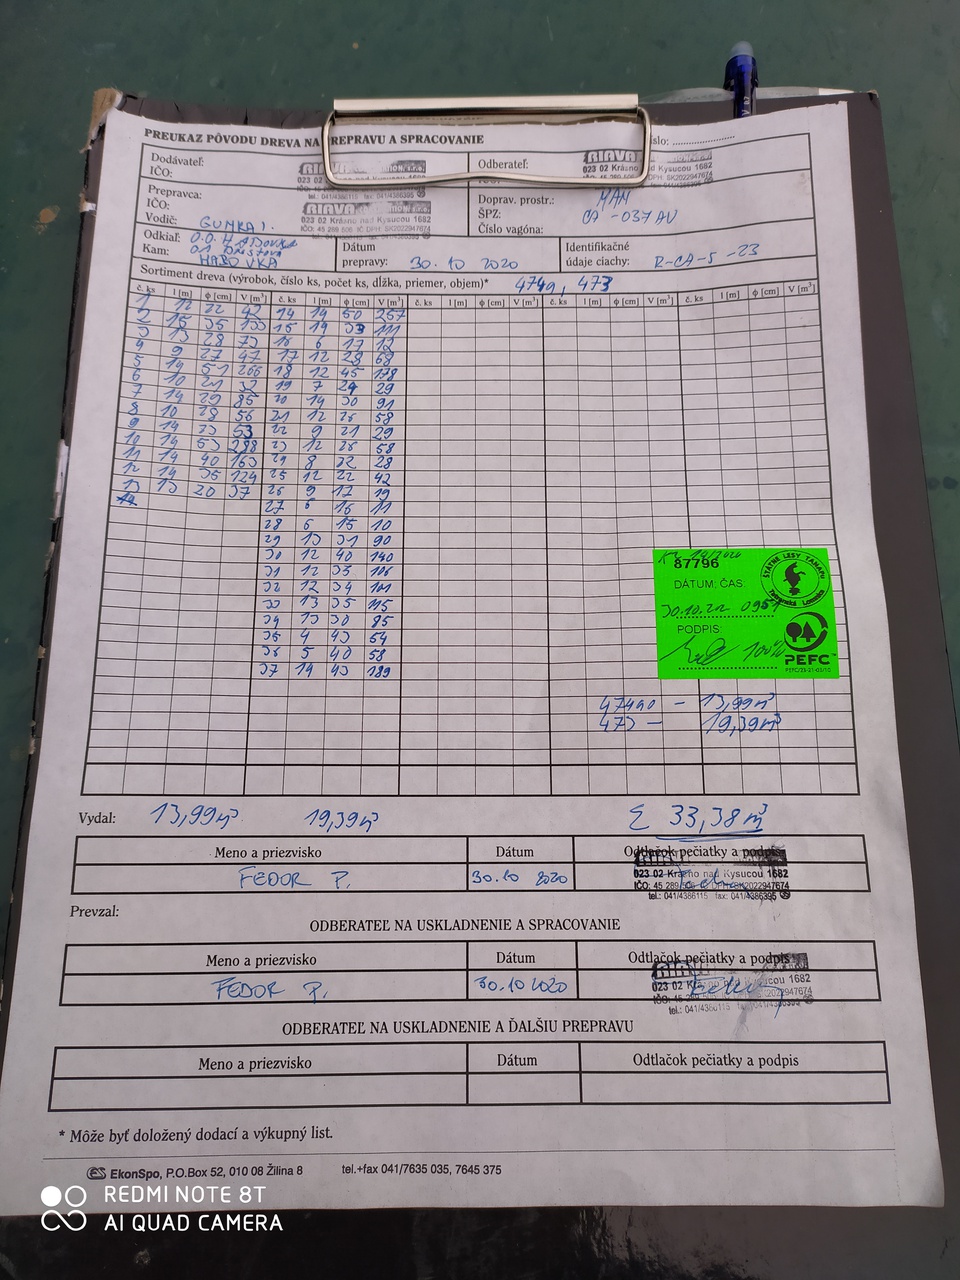 PREUKAZ PÔVODU DREVA NA PREPRAVU A SPRACOVANIE
Dodávateľ:
IČO:
023 02
Odberateľ:
RIAVA
023 02 Krásno nad Kysucou 1682
DPH: SK2022947674
tel.: 041/4386115 fax: 041/4386395
Prepravca:
IČO:
RIAVA
023 02 Krásno nad Kysucou 1682
Doprav. prostr.: MAN
ŠPZ: CA -037AU
Číslo vagóna:
Vodič: GUNKA I.
Odkiaľ: O.O. HABOVKA
Kam: HABOVKA
Dátum
prepravy: 30.10 2020
Identifikačné
údaje ciachy: R-CA-5 -23
Sortiment dreva (výrobok, číslo ks, počet ks, dĺžka, priemer, objem)* 474a, 473
č. ks l [m] ϕ [cm] V [m³] č. ks l [m] ϕ [cm] V [m³] č. ks l [m] ϕ [cm] V [m³] č. ks l [m] ϕ [cm] V [m³] č. ks l [m] ϕ [cm] V [m³]
1 12 22 42 14 14 50 257
2 15 35 133 15 14 33 111
3 13 28 73 16 6 17 12
4 9 27 47 17 12 28 68
5 14 51 266 18 12 45 178
6 10 21 32 19 7 24 29
7 14 29 85 20 14 30 91
8 10 28 56 21 12 26 58
9 14 23 53 22 9 21 29
10 14 53 288 23 12 26 58
11 14 40 163 24 8 22 28
12 14 35 124 25 12 22 42
13 13 20 37 26 9 17 19
27 6 16 11
28 6 15 10
29 13 31 90
30 12 40 140
31 12 35 106
32 12 34 101
33 13 35 115
34 13 30 85
35 4 43 54
36 5 40 58
37 14 43 189
87796
DÁTUM; ČAS:
30.10.20 0951
PODPIS:
100%
ŠTÁTNE LESY TANAPU
Tatranská Lomnica
PEFC
474a - 13,99m³
473 - 19,39m³
Vydal: 13,99m³ 19,39m³ Σ 33,38m³
Meno a priezvisko Dátum Odtlačok pečiatky a podpis
FEDOR P. 30.10 2020
023 02 Krásno nad Kysucou 1682
tel.: 041/4386115 fax: 041/4386395
Prevzal:
ODBERATEĽ NA USKLADNENIE A SPRACOVANIE
Meno a priezvisko Dátum Odtlačok pečiatky a podpis
FEDOR P. 30.10 2020
RIAVA
023 02 Krásno nad Kysucou 1682
ODBERATEĽ NA USKLADNENIE A ĎALŠIU PREPRAVU
Meno a priezvisko Dátum Odtlačok pečiatky a podpis
* Môže byť doložený dodací a výkupný list.
EkonSpo, P.O.Box 52, 010 08 Žilina 8 tel.+fax 041/7635 035, 7645 375
REDMI NOTE 8T
AI QUAD CAMERA